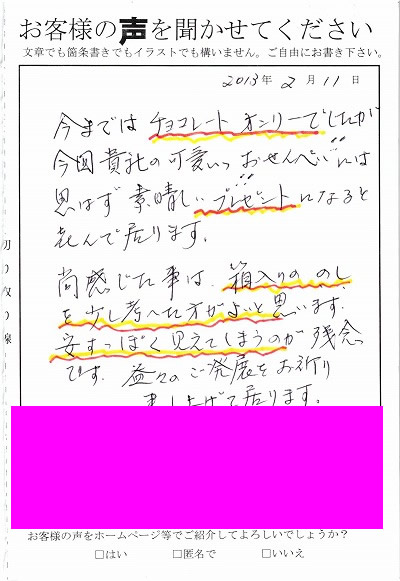 お客様の声を聞かせてください
文章でも箇条書きでもイラストでも構いません。ご自由にお書き下さい。
2013年 2月 11日
今まではチョコレートオンリーでしたが
今回貴社の可愛いっおせんべいには
思はず素晴しいプレゼントになると
喜んで居ります。
尚感じた事は、箱入りののし
を少し考へた方がよいと思います。
安すっぽく見えてしまうのが残念
です。益々のご発展をお祈り
申し上げて居ります。
切り取り線
お客様の声をホームページ等でご紹介してよろしいでしょうか？
□はい □匿名で □いいえ